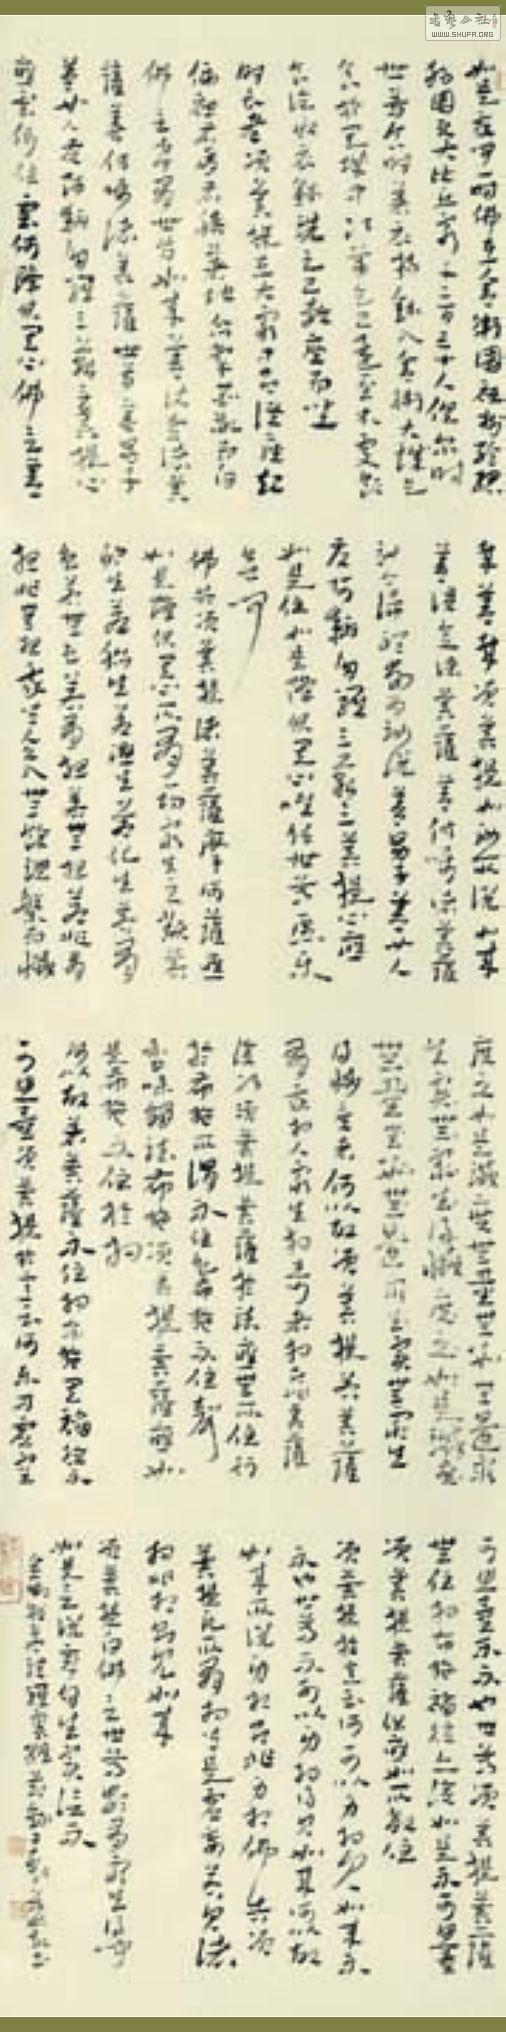 如是我聞一時佛在舍衛國祇樹給孤
獨園與大比丘眾千二百五十人俱爾時
世尊食時著衣持鉢入舍衛大城乞
食於其城中次第乞已還至本處飯
食訖收衣鉢洗足已敷座而坐
時長老須菩提在大眾中即從座起
偏袒右肩右膝著地合掌恭敬而白
佛言希有世尊如來善護念諸菩
薩善付囑諸菩薩世尊善男子
善女人發阿耨多羅三藐三菩提心
應云何住云何降伏其心佛言善
哉善哉須菩提如汝所說如來
善護念諸菩薩善付囑諸菩薩
汝今諦聽當為汝說善男子善女人
發阿耨多羅三藐三菩提心應
如是住如是降伏其心唯然世尊願樂
欲聞
佛告須菩提諸菩薩摩訶薩應
如是降伏其心所有一切眾生之類若
卵生若胎生若濕生若化生若有
色若無色若有想若無想若非有
想非無想我皆令入無餘涅槃而滅
度之如是滅度無量無數無邊眾
生實無眾生得滅度之如是滅度
無量無數無邊眾生實無眾生
得滅度者何以故須菩提若菩薩
有我相人相眾生相壽者相即非菩薩
復次須菩提菩薩於法應無所住行
於布施所謂不住色布施不住聲
香味觸法布施須菩提菩薩應如
是布施不住於相
何以故若菩薩不住相布施其福德不
可思量須菩提於意云何東方虛空
可思量不不也世尊須菩提菩薩
無住相布施福德亦復如是不可思量
須菩提菩薩但應如所教住
須菩提於意云何可以身相見如來不
不也世尊不可以身相得見如來何以故
如來所說身相即非身相佛告須
菩提凡所有相皆是虛妄若見諸
相非相即見如來
須菩提白佛言世尊頗有眾生得聞
如是言說章句生實信不
金剛般若波羅蜜經
WWW.SHUFA.ORG